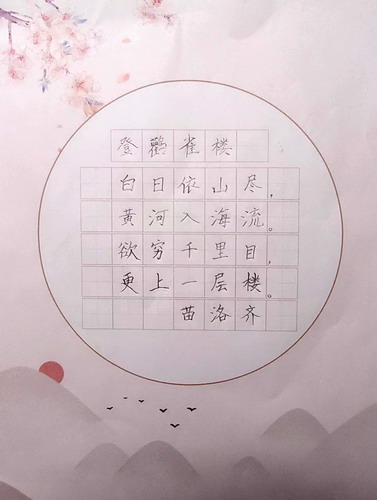 登鸛雀楼
白日依山尽，
黄河入海流。
欲穷千里目，
更上一层楼。
苗洛齐